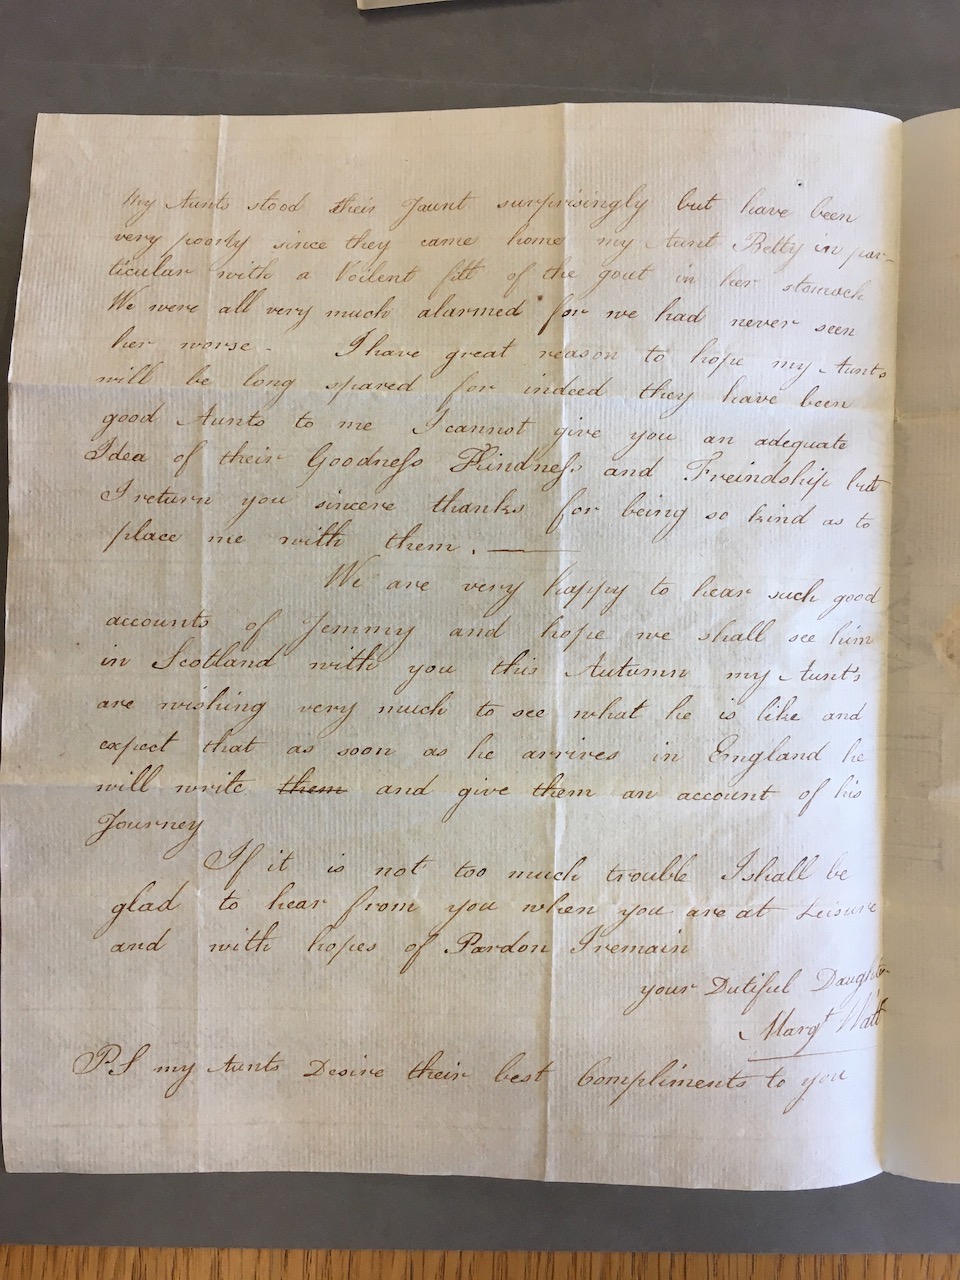 My Aunts stood their Jaunt surprisingly but have been
very poorly since they came home my Aunt Betty in par-
ticular with a Voilent fitt of the gout in her stomach
We were all very much alarmed for we had never seen
her worse - I have great reason to hope my Aunts
will be long spared for indeed they have been
good Aunts to me I cannot give you an adequate
Idea of their Goodness Kindness and Freindship but
I return you sincere thanks for being so kind as to
place me with them. —
We are very happy to hear such good
accounts of Jemmy and hope we shall see him
in Scotland with you this Autumn my Aunts
are wishing very much to see what he is like and
expect that as soon as he arrives in England he
will write them and give them an account of his
Journey
If it is not too much trouble I shall be
glad to hear from you when you are at Leisure
and with hopes of Pardon I remain
your Dutiful Daughter
Margt Watt
PS my Aunts Desire their best Compliments to you